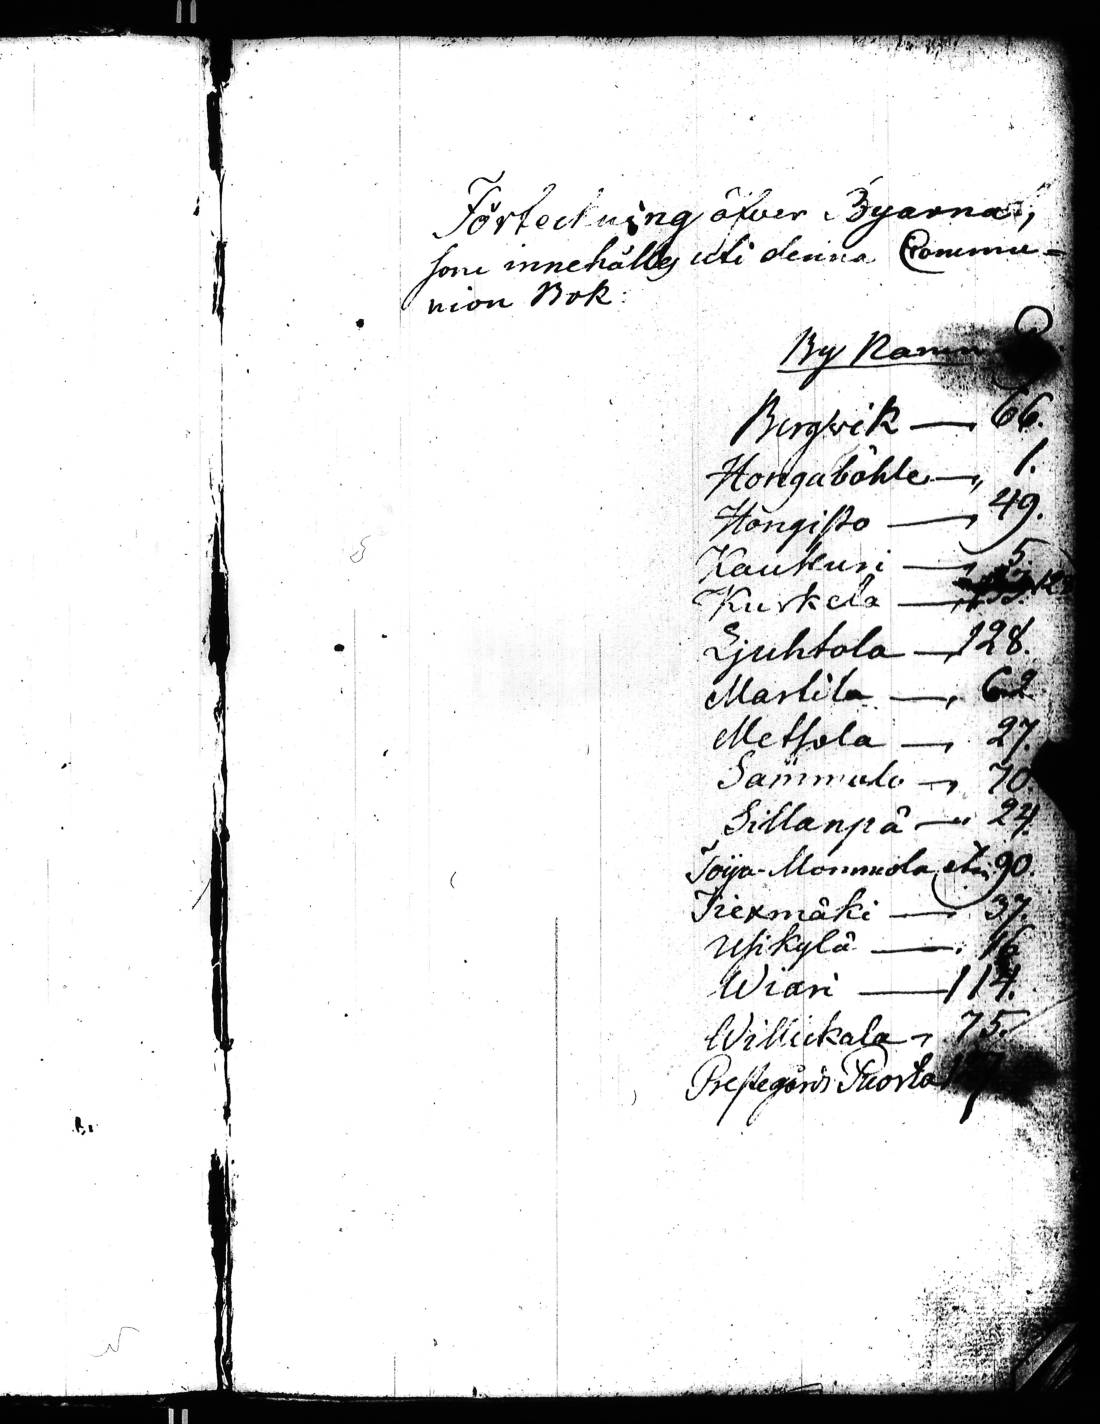 Förteckning öfver Byarna,
som innehålles uti denna Commu=
nion Bok:
By Namn
Bergwik — 66.
Hongaböhle — 1.
Hångisto — 49.
Kaukuri — 5.
Kurkela —
Ljuhtola — 128.
Martila — 62
Metsola — 27.
Sammalo — 70.
Sillanpä — 24.
Toija-Mommola etc. 90.
Tiexmäki — 37.
Ylikylä — 16
Wiari — 114.
Willickala — 75.
Prestegårds Tuorla